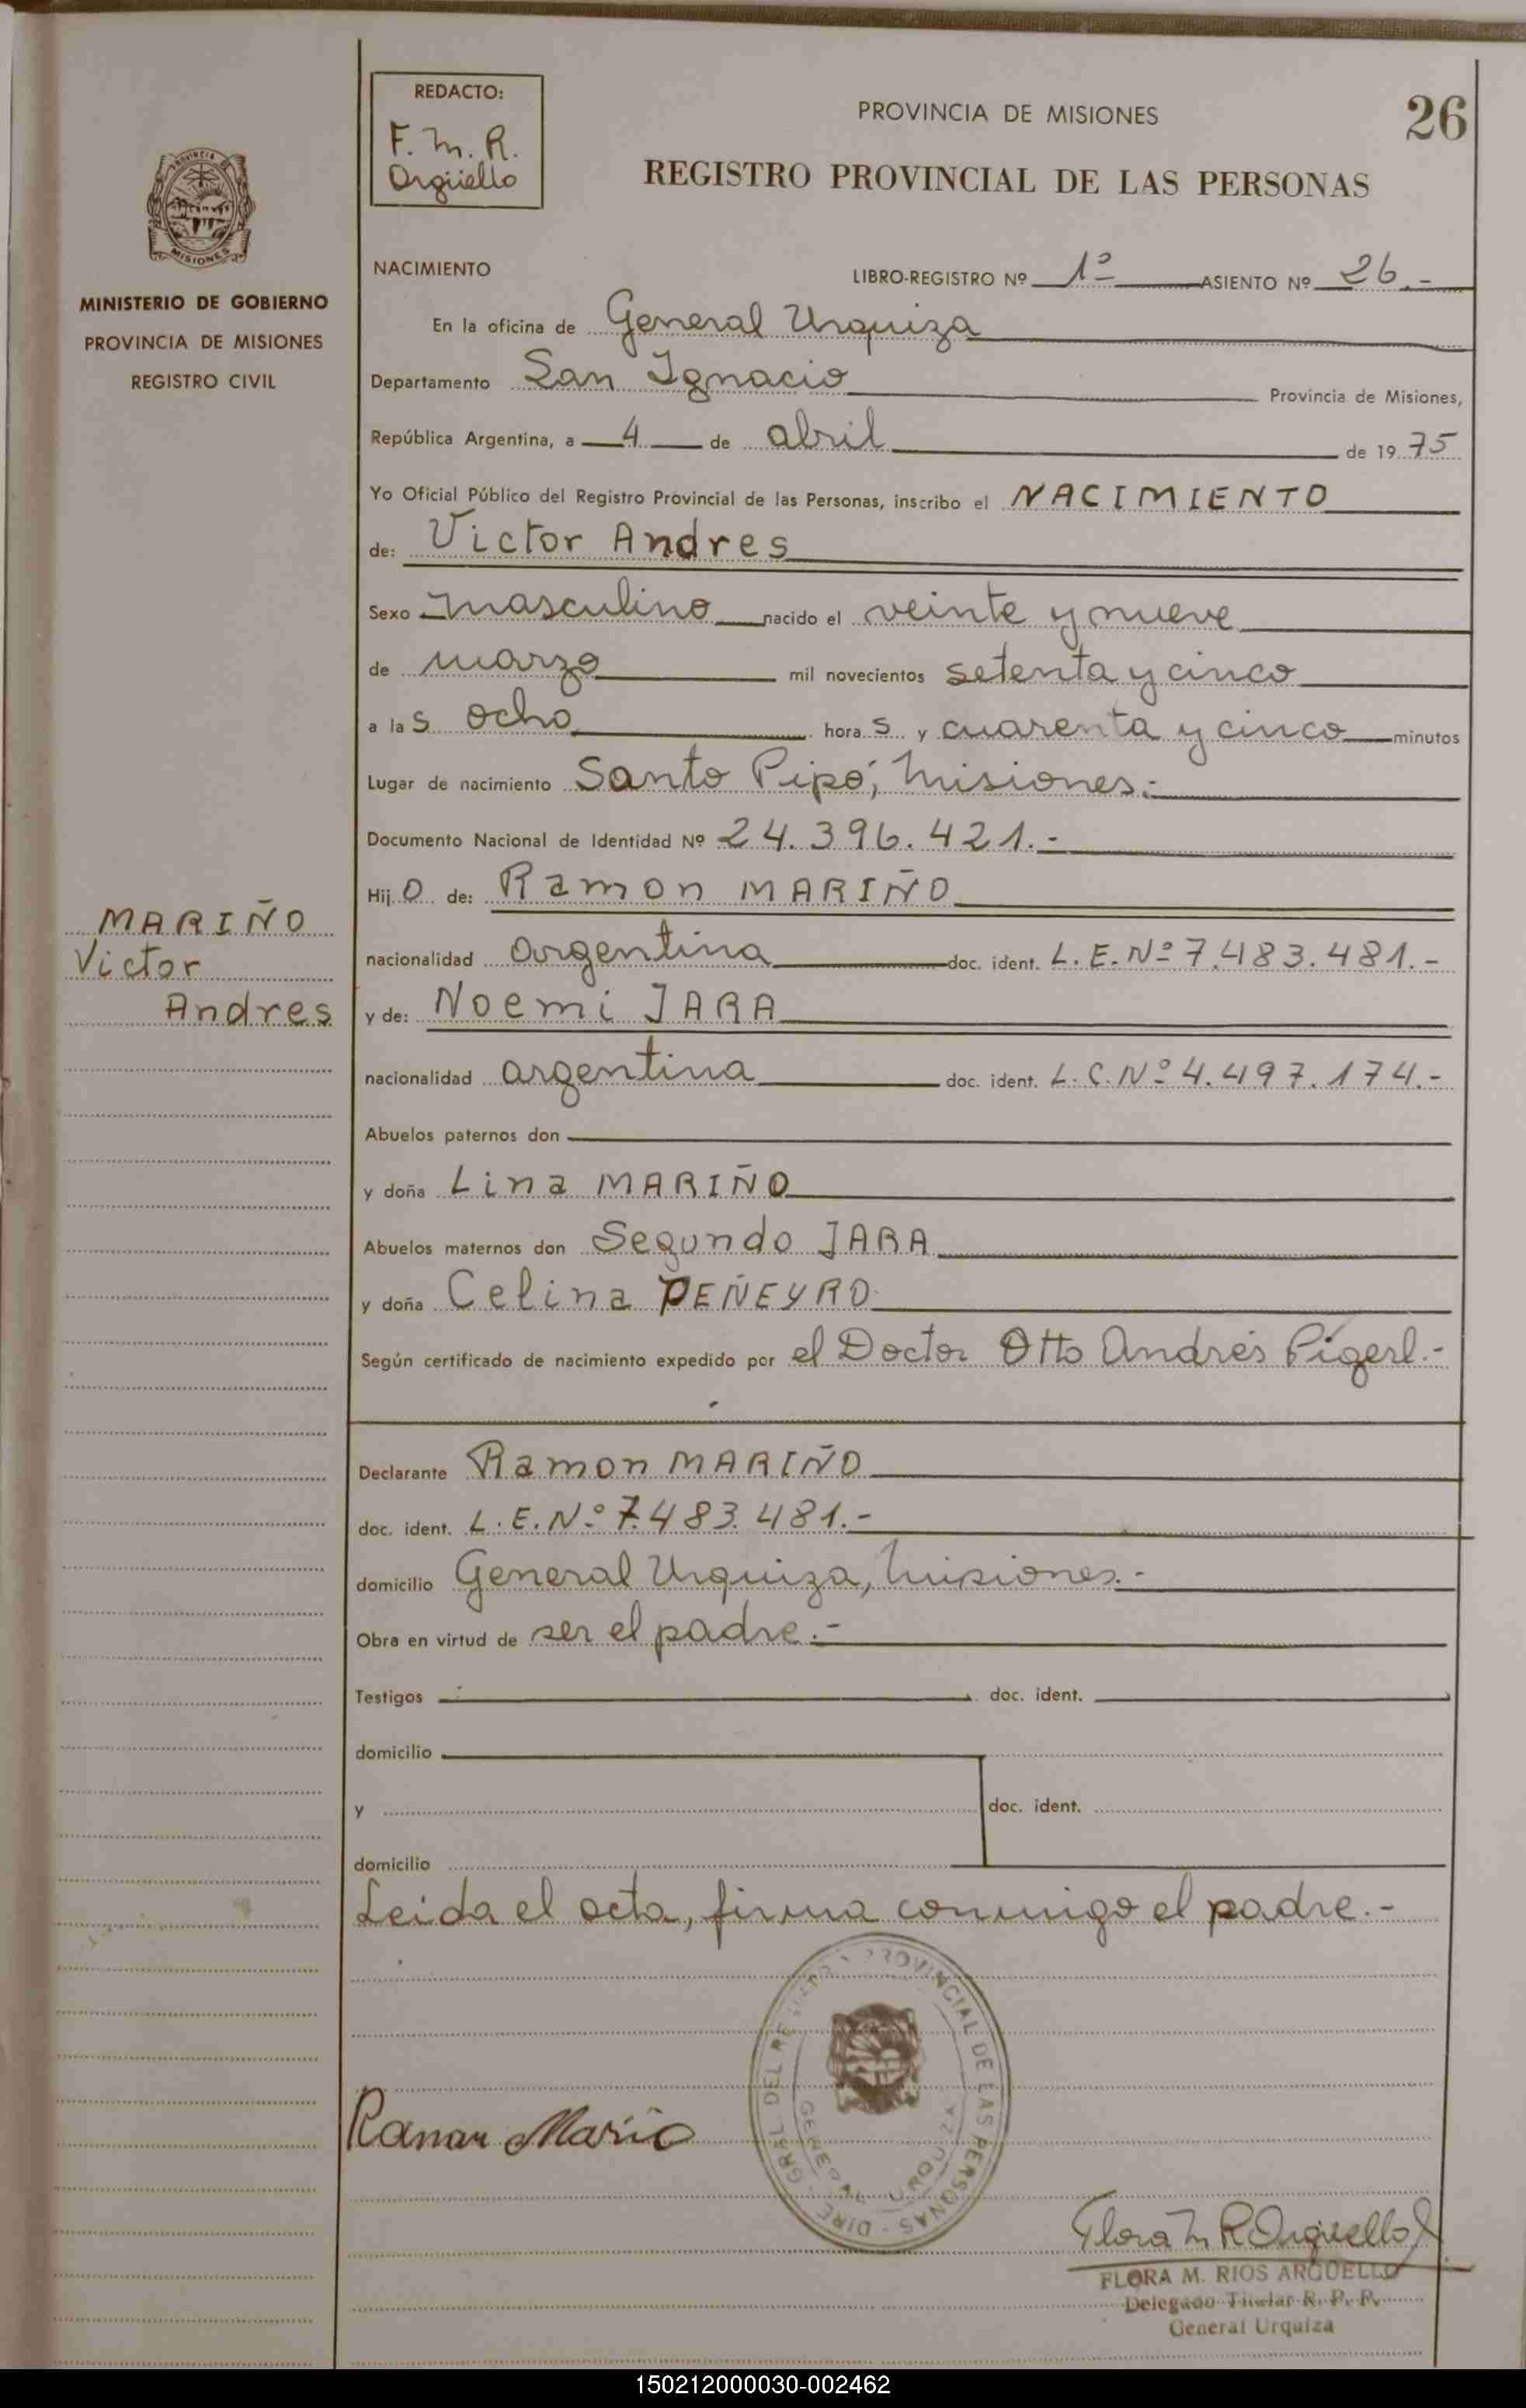 REDACTO:
F. M. R.
Argüello
PROVINCIA DE MISIONES
26
REGISTRO PROVINCIAL DE LAS PERSONAS
MISIONES
MINISTERIO DE GOBIERNO
PROVINCIA DE MISIONES
REGISTRO CIVIL
NACIMIENTO
LIBRO-REGISTRO Nº 1º ASIENTO Nº 26.-
En la oficina de General Urquiza
Departamento San Ignacio Provincia de Misiones,
República Argentina, a 4 de abril de 1975
Yo Oficial Público del Registro Provincial de las Personas, inscribo el NACIMIENTO
de: Victor Andres
Sexo masculino nacido el veinte y nueve
de marzo mil novecientos setenta y cinco
a las ocho horas y cuarenta y cinco minutos
Lugar de nacimiento Santo Pipó, Misiones.-
Documento Nacional de Identidad Nº 24.396.421.-
Hijo de: Ramon MARIÑO
MARIÑO
Victor
Andres
nacionalidad argentina doc. ident. L.E.Nº 7.483.481.-
y de: Noemi JARA
nacionalidad argentina doc. ident. L.C.Nº 4.497.174.-
Abuelos paternos don
y doña Lina MARIÑO
Abuelos maternos don Segundo JARA
y doña Celina PEÑEYRO
Según certificado de nacimiento expedido por el Doctor Otto Andrés Pigerl.-
Declarante Ramon MARIÑO
doc. ident. L.E.Nº 7.483.481.-
domicilio General Urquiza, Misiones.-
Obra en virtud de ser el padre.-
Testigos doc. ident.
domicilio
y doc. ident.
domicilio
Leida el acta, firma conmigo el padre.-
PROVINCIAL DE LAS PERSONAS - DIRE. GRAL. DEL
GENERAL URQUIZA
Ramon Mario
Flora M R Argüello
FLORA M. RIOS ARGÜELLO
Delegado Titular R. P. P.
General Urquiza
150212000030-002462